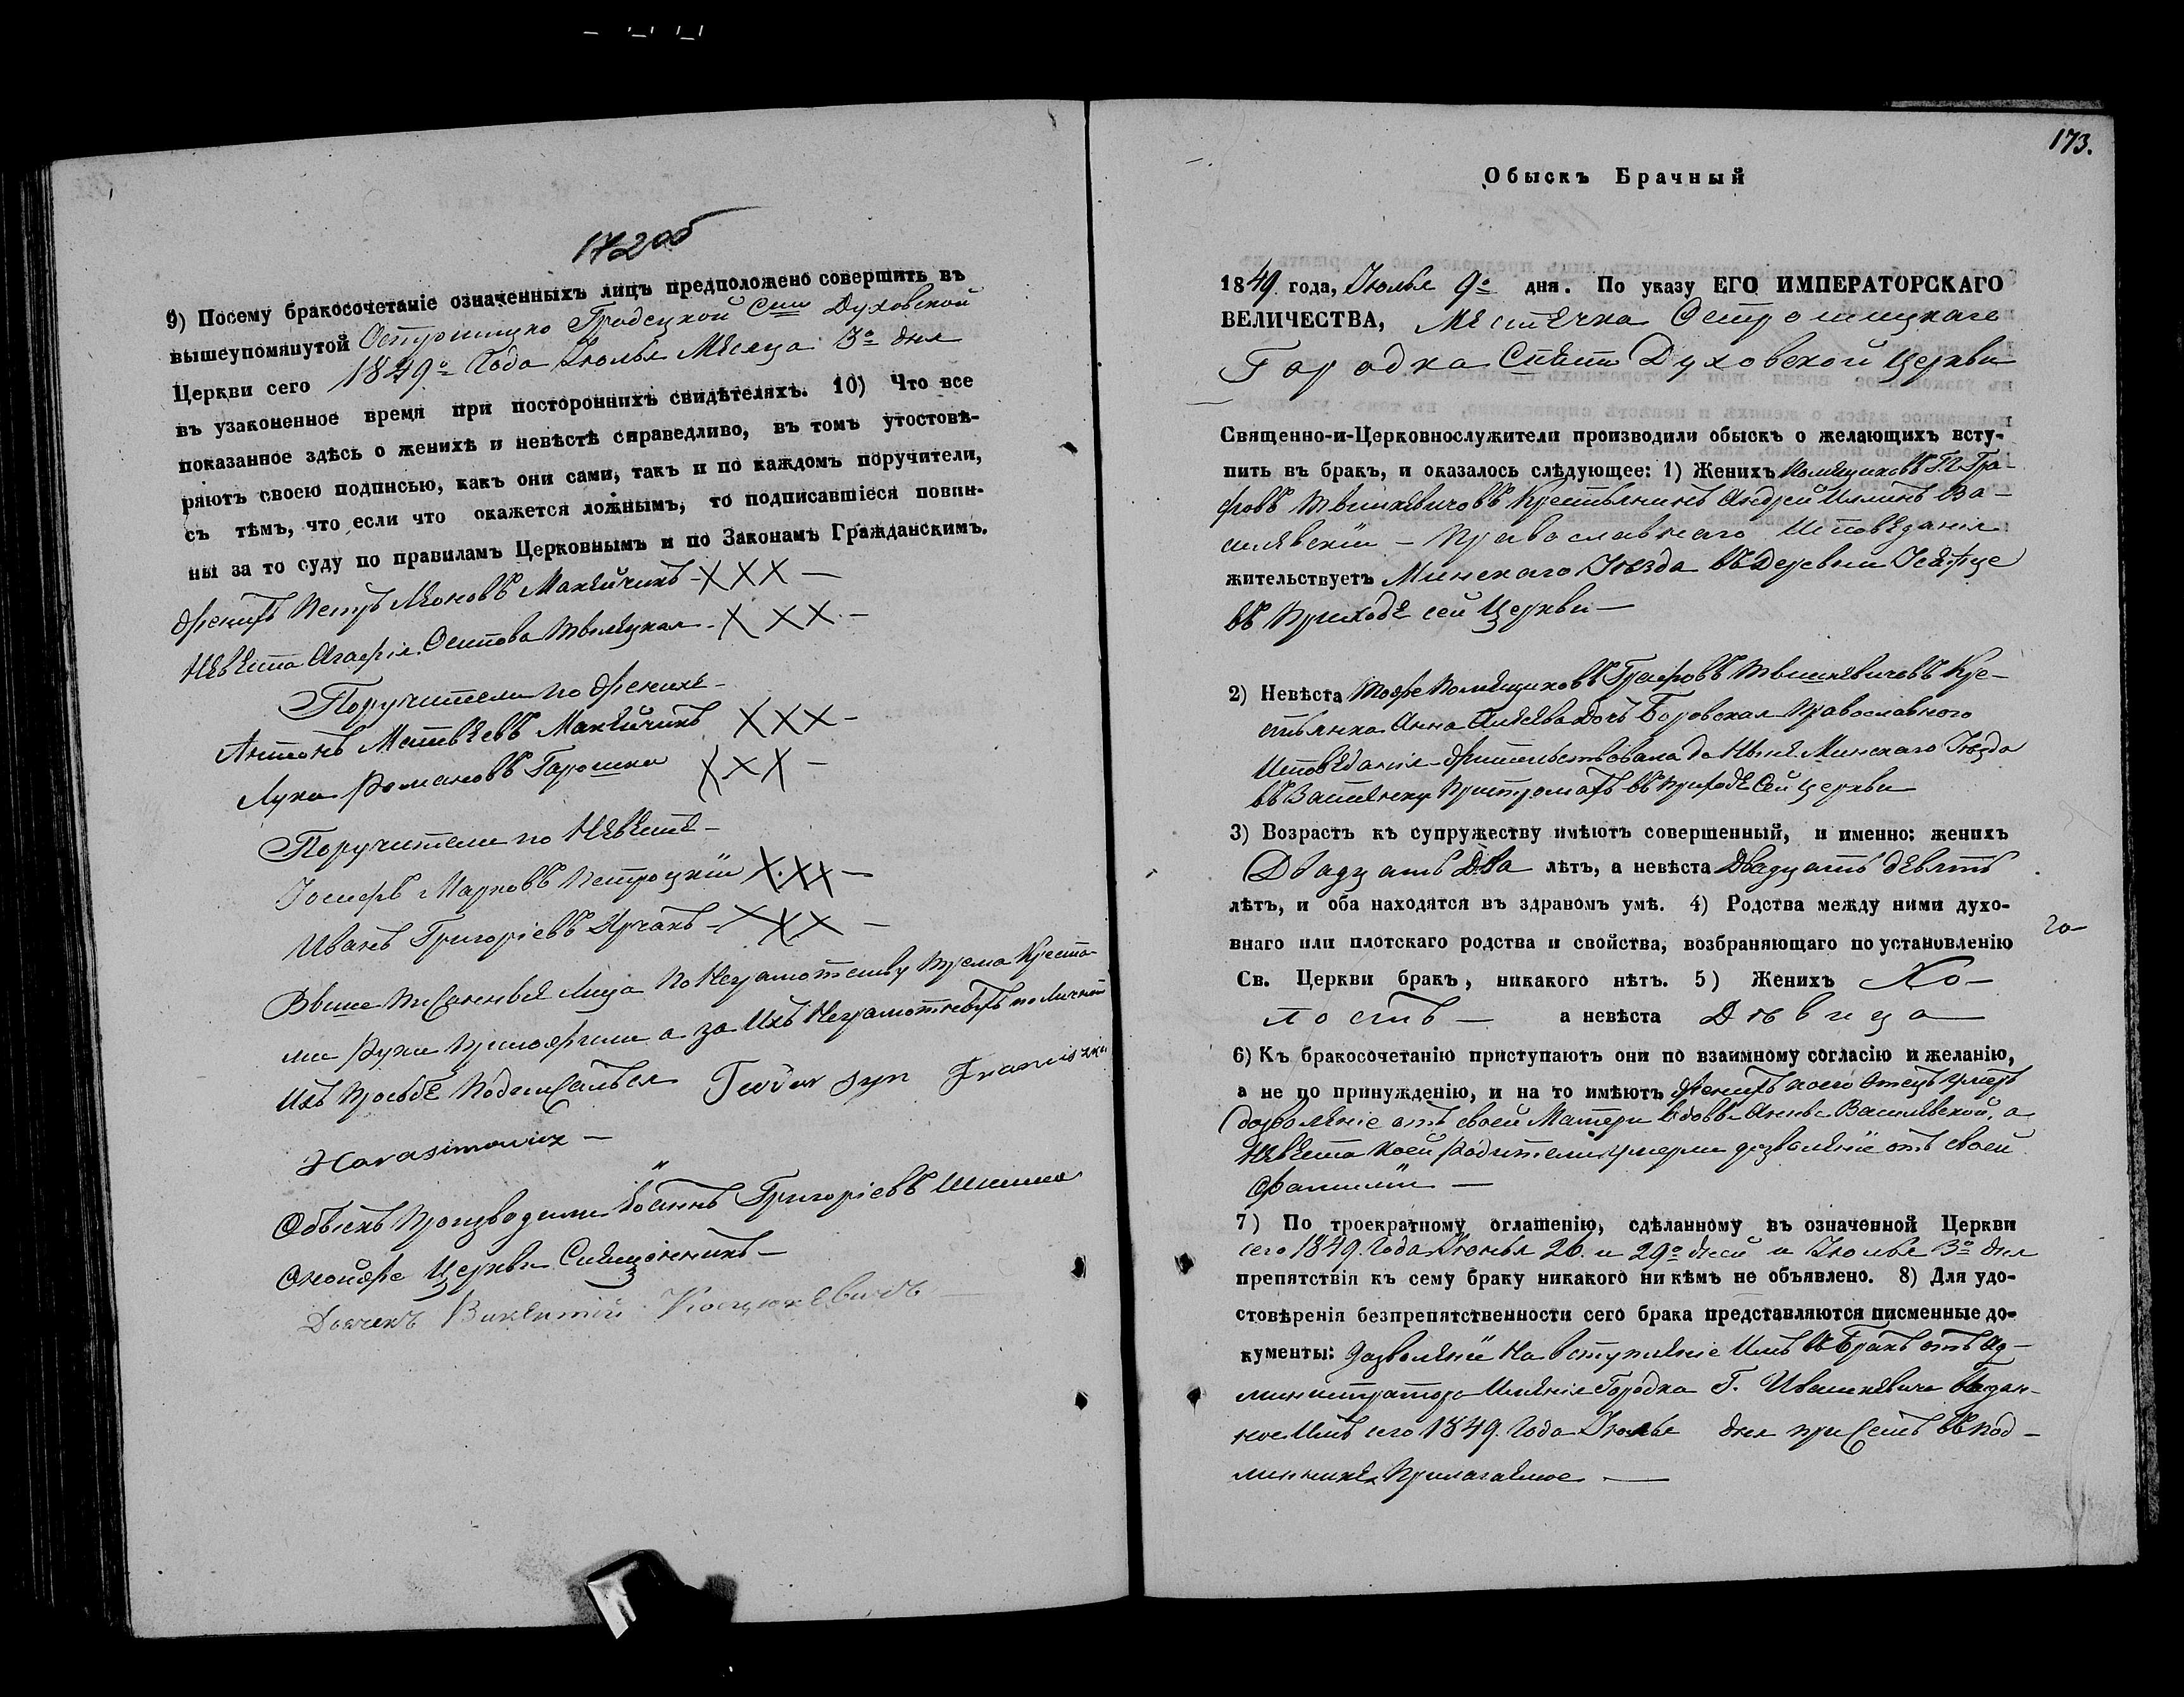 172об
9) Посему бракосочетаніе означенныхъ лицъ предположено совершить въ
вышеупомянутой Острошицко Градецкой Свт Духовской
Церкви сего 1849о Года Іюлья Месяца 3о дня
въ узаконенное время при постороннихъ свидѣтеляхъ. 10) Что все
показанное здѣсь о женихѣ и невѣстѣ справедливо, въ томъ утостовѣ-
ряютъ своею подписью, какъ они сами, такъ и по каждомъ поручители,
съ тѣмъ, что если что окажется ложнымъ, то подписавшіеся повин-
ны за то суду по правиламъ Церковнымъ и по Законамъ Гражданскимъ.
Женихъ Петръ Леоновъ Макейчикъ XXX —
Невеста Агафія Осипова XXX —
Поручители по Женихе —
Антонъ Матвеевъ Макейчикъ XXX —
Лука Романовъ Гарошка XXX —
Поручители по Невесте —
Іосифъ Марковъ Петроцкій XXX —
Иванъ Григоріевъ XXX —
Выше Писанные Лица По Неграмотству трема Креста-
ми Руки приложили а за Ихъ Неграмотныхъ по Личной
Ихъ Прозьбе Подписался Teodor syn Franciszka
Harasimowicz —
Обыскъ Производили Іоаннъ Григоріевъ
Онойже Церкви Священникъ —
Дьячекъ Викентій
173.
Обыскъ Брачный
1849 года, Іюлья 9о дня. По указу ЕГО ИМПЕРАТОРСКАГО
ВЕЛИЧЕСТВА, Местечка Острошицкаго
Городка Свят Духовской Церкви
Священно-и-Церковнослужители производили обыскъ о желающихъ всту-
пить въ бракъ, и оказалось слѣдующее: 1) Женихъ Помещиковъ Г.Г. Гра-
фовъ Тышкевичовъ Крестьянинъ Андрей Ильинъ Ва-
силевскій — Православнаго Исповеданія
жительствуетъ Минскаго Уезда въ Деревни
въ Приходе сей Церкви —
2) Невѣста Тойже Помещиковъ Графовъ Тышкевичовъ Кре-
стьянка Анна дочъ Боровская Православного
Исповеданія — Жительствовала до Ныне Минскаго Уезда
въ въ приходе Сей Церкви
3) Возрастъ къ супружеству имѣютъ совершенный, и именно: женихъ
Двадцать Два лѣтъ, а невѣста Двадцать девять
лѣтъ, и оба находятся въ здравомъ умѣ. 4) Родства между ними духо-
внаго или плотскаго родства и свойства, возбраняющаго по установленію
Св. Церкви бракъ, никакого нѣтъ. 5) Женихъ Хо-
лостъ — а невѣста Девица
6) Къ бракосочетанію приступаютъ они по взаимному согласію и желанію,
а не по принужденію, и на то имѣютъ Женихъ коего Отецъ умеръ
дозволеніе отъ своей Матери вдовы Анны Василевской, а
Невеста коей Родители умерли дозволеніе отъ своей
Фамиліи —
7) По троекратному оглашенію, сдѣланному въ означенной Церкви
сего 1849. Года Іюнья 26. и 29о дней и Іюлья 3о дня
препятствія къ сему браку никакого ни кѣмъ не объявлено. 8) Для удо-
стовѣренія безпрепятственности сего брака представляются писменные до-
кументы: дазволеніе на вступленіе Имъ въ Бракъ отъ Ад-
министратора Именія Городка Г. Ивашкевича выдан-
ное Имъ сего 1849. Года Іюлья дня при Семъ въ под-
линнике Прилагаемое —